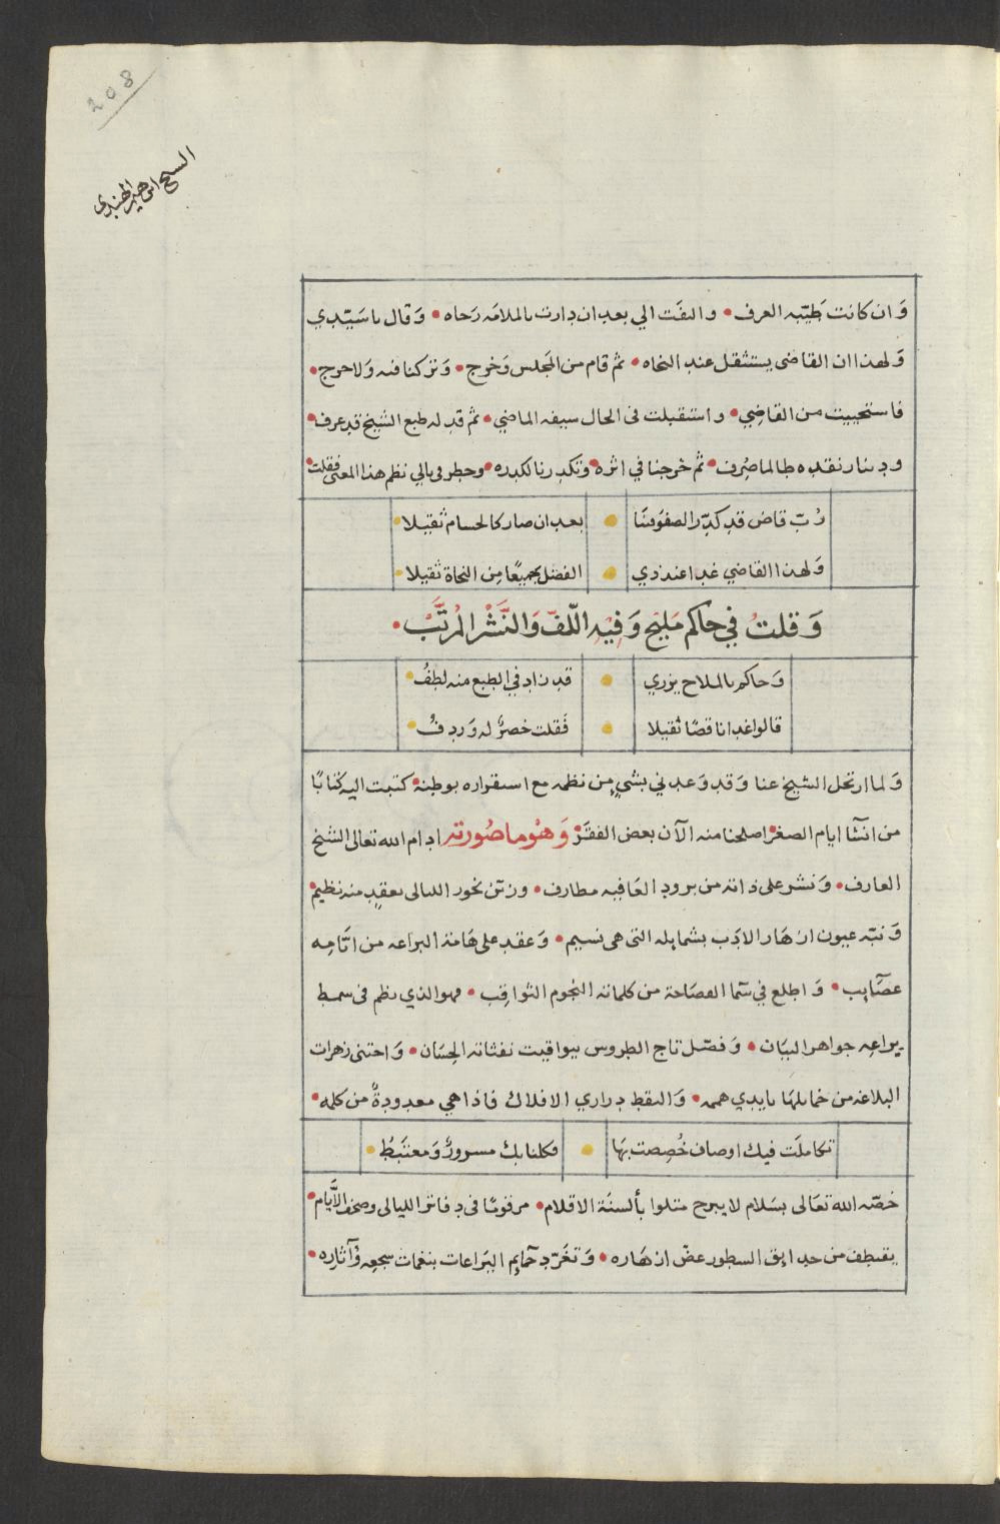 208
السيح ابن هيد الهندي
وَان كانت طَيّبه العرف • والتفَت الي بعد ان دارت بالملامَه رَحاه • وَقال ياسَيّدي
وَلهذا ان القاضى يستثقل عند النحاه • ثم قام من المَجلس وَخرج • وَتركنا فيه وَلاحرج •
فاستحييت من القاضِي • واستقبلت فى الحال سيفه الماضي • ثم قد له طبع الشيخ قد عرف •
ودينار نقده طالما صُرف • ثم خرجنا في اثره • وتكدرنا لكدره • وخطر فى بالي نظم هذا المعنى فقلت •
رُبّ قاض قد كدّر الصفوَ منّا • بعد ان صار كالحسام ثقيلا •
وَلهذا القاضي غدا عند ذي • الفضل جميعًا مِن النحاة ثقيلا •
وَقلتُ في حَاكم مَليَح وَفِيْهِ اللّفّ وَالنَّشْر المُرتَّبْ •
وَحاكم بالملاح يزري • قد زاد في الطبع منه لطفُ •
قالوا غدا ناقصًا ثقيلا • فَقلت خصرٌ له وَردفُ •
وَلما ارتحل الشيخ عنا وَقد وَعدني بشيٍ من نظمه مع استقراره بوطنه • كتبت اليه كتابًا
من انشا ايام الصغر • اصلحنا منه الآن بعض الفقَرْ • وَهوُ ما صُورته ادام الله تعالى الشيخ
العارف • وَنشر على ذاته من برود العَافيه مطارف • وزيّن نحور الليالى بعقدٍ من نظيم •
وَنبّه عيون ازهَار الادَب بشمايله التى هى نسيم • وَعقد على هَامة البراعه من اتاجه
عصَايب • وَاطلع في سَما الفصَاحة من كلماته النجوم الثواقِب • فهوالذي نظم فى سمط
يراعِه جواهر البيَان • وَفصّل تاج الطروس بيواقيت نفثاته الحِسَان • وَاجتنى زهرات
البلاغه من خمايلهَا بايدي هممه • وَالتقط دراري الافلاك فاذا هي معدودةٌ من كلمه •
تكاملَت فيك اوصاف خُصِصت بهَا • فكلنا بك مسرورٌ وَمغتبَطُ •
خصّه الله تعَالى بسَلام لا يبرح متلوا بألسنَة الاقلام • مرقومًا فى دفاتر الليالى وصحف الأيام •
يقتطف من حدايق السطور غضّ ازهَاره • وَتغَرّد حَمايم اليَراعات بنغمات سجعِه وَآثاره •